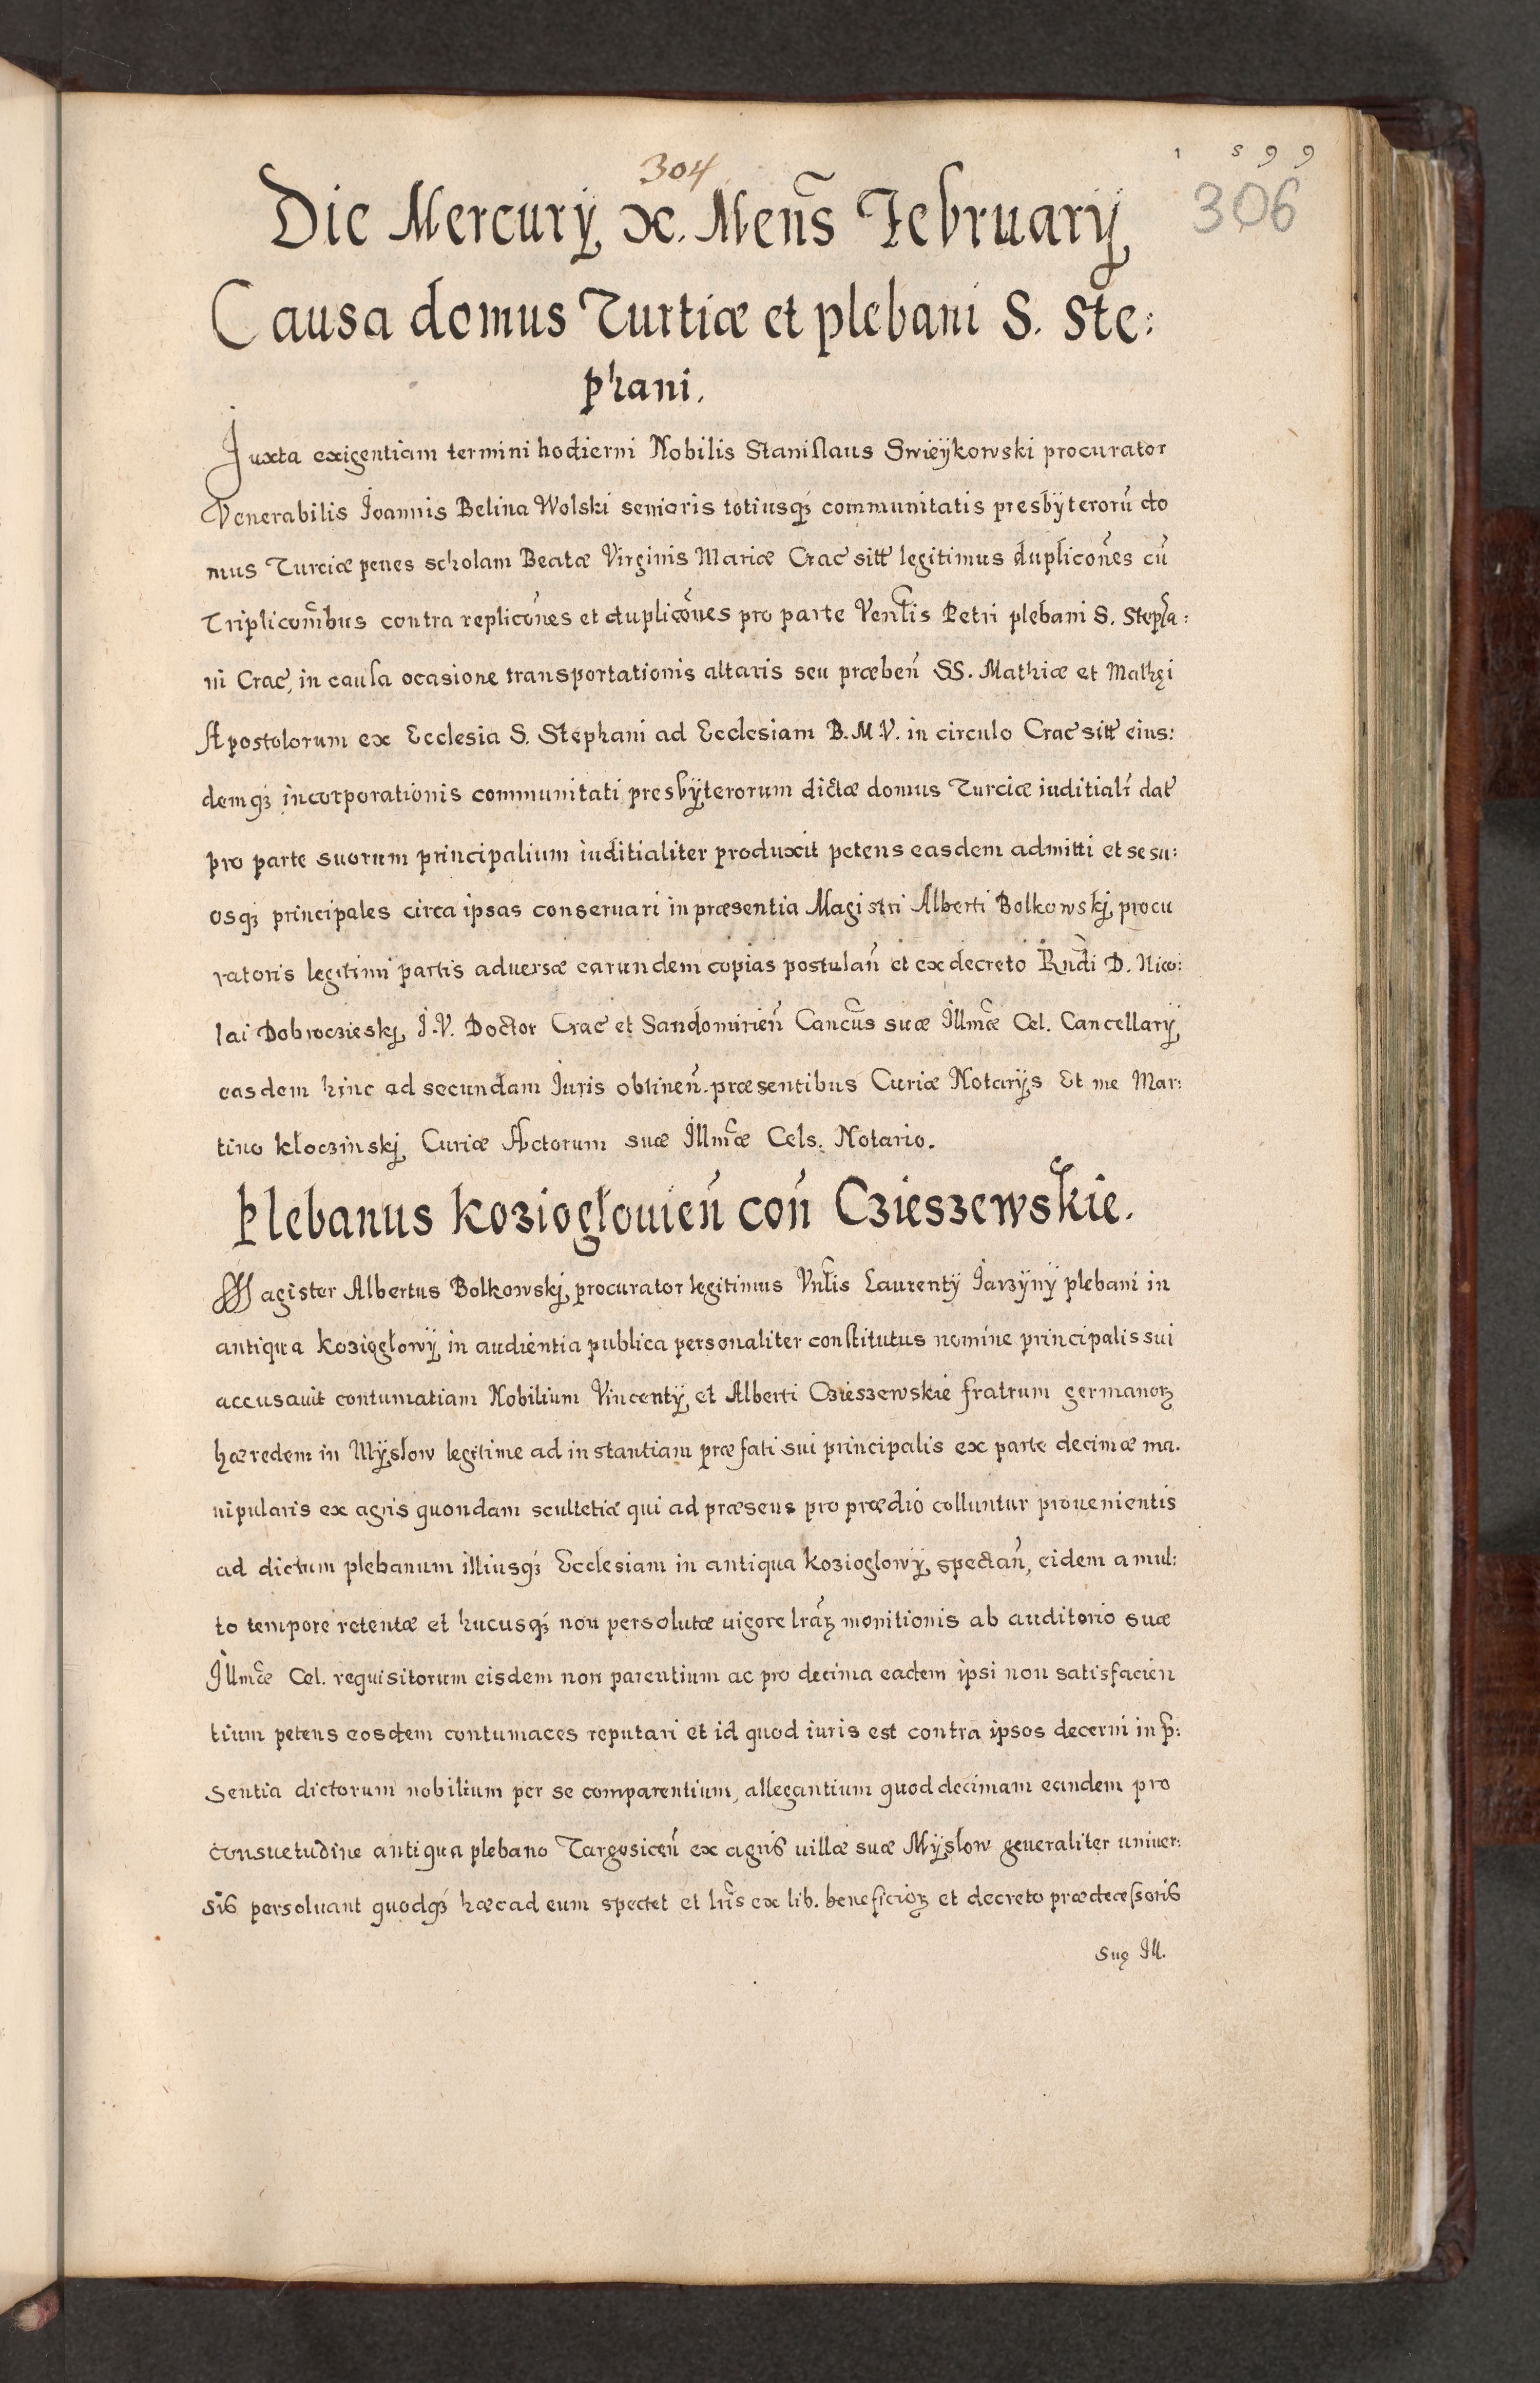 304
1 5 9 9
306
Die Mercurÿ x. Meñs Februarÿ
Causa domus Turtiæ et plebani S. Ste:
phani.
Juxta exigentiam termini hodierni Nobilis Stanislaus Swieÿkowski procurator
Venerabilis Joannis Belina Wolski senioris totiusqȝ communitatis presbÿterorũ do
mus Turciæ penes scholam Beatæ Virginis Mariæ Crac̃ sitt̃ legitimus duplicoñes cũ
Triplicom̃bus contra replicoñes et duplicoñes pro parte Veñlis Petri plebani S. Stepha:
ni Crac̃, in causa ocasione transportationis altaris seu præbeñ SS. Mathiæ et Mathęi
Apostolorum ex Ecclesia S. Stephani ad Ecclesiam B.M.V. in circulo Crac̃ sitt̃ eius:
demqȝ incorporationis communitati presbÿterorum dictæ domus Turciæ iuditialr̃ dat̃
pro parte suorum principalium iuditialiter produxit petens easdem admitti et se su:
osqȝ principales circa ipsas conseruari in præsentia Magistri Alberti Bolkowskj procu
ratoris legitimi partis aduersæ earundem copias postulañ et ex decreto Rñdi D. Nico:
lai Dobroczieskj J.V. Doctor Crac̃ et Sandomirieñ Canc̃us suæ Illmæ̃ Cel. Cancellarÿ
easdem hinc ad secundam Juris obtineñ. præsentibus Curiæ Notarÿs Et me Mar:
tino Kłoczinskj Curiæ Actorum suæ Illmæ̃ Cels. Notario.
Plebanus Koziogłouieñ coñ Czieszewskie.
Magister Albertus Bolkowskj procurator legitimus Vñlis Laurentÿ Jarzÿnÿ plebani in
antiqua Koziogłowÿ in audientia publica personaliter constitutus nomine principalis sui
accusauit contumatiam Nobilium Vincentÿ et Alberti Czieszewskie fratrum germanorꝝ
hæredem in Mÿsłow legitime ad instantiam præfati sui principalis ex parte decimæ ma.
nipularis ex agris quondam scultetiæ qui ad præsens pro prædio colluntur prouenientis
ad dictum plebanum illiusqȝ Ecclesiam in antiqua Koziogłowÿ spectañ, eidem a mul:
to tempore retentæ et hucusqȝ non persolutæ uigore lrãꝝ monitionis ab auditorio suæ
Illmæ̃ Cel. requisitorum eisdem non parentium ac pro decima eadem ipsi non satisfacien
tium petens eosdem contumaces reputari et id quod iuris est contra ipsos decerni in p̃:
sentia dictorum nobilium per se comparentium, allegantium quod decimam eandem pro
consuetudine antiqua plebano Targosiceñ ex agris uillæ suæ Mÿsłow generaliter uniuer:
sis persoluant quodqȝ hæc ad eum spectet et lr̃is ex lib. beneficioꝝ et decreto prædecessoris
suę Ill.